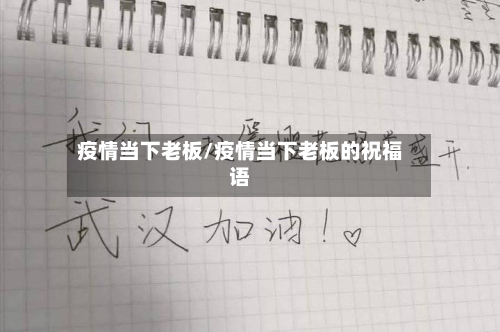 我们一起
盛开.
疫情当下老板/疫情当下老板的祝福
语
武汉加油！♡